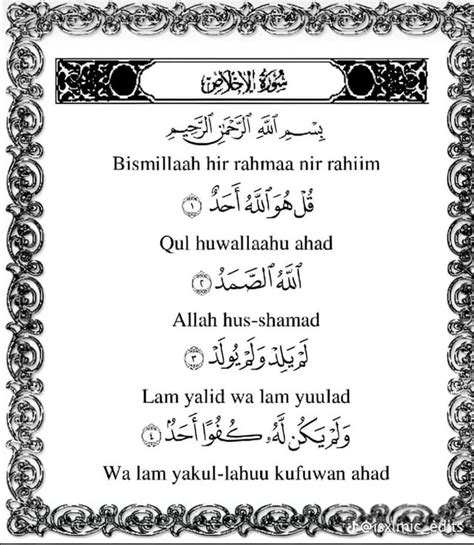 سُورَةُ الإِخْلَاصِ
بِسْمِ اللَّهِ الرَّحْمَٰنِ الرَّحِيمِ
Bismillaah hir rahmaa nir rahiim
قُلْ هُوَ اللَّهُ أَحَدٌ ١
Qul huwallaahu ahad
اللَّهُ الصَّمَدُ ٢
Allah hus-shamad
لَمْ يَلِدْ وَلَمْ يُولَدْ ٣
Lam yalid wa lam yuulad
وَلَمْ يَكُن لَّهُ كُفُوًا أَحَدٌ ٤
Wa lam yakul-lahuu kufuwan ahad